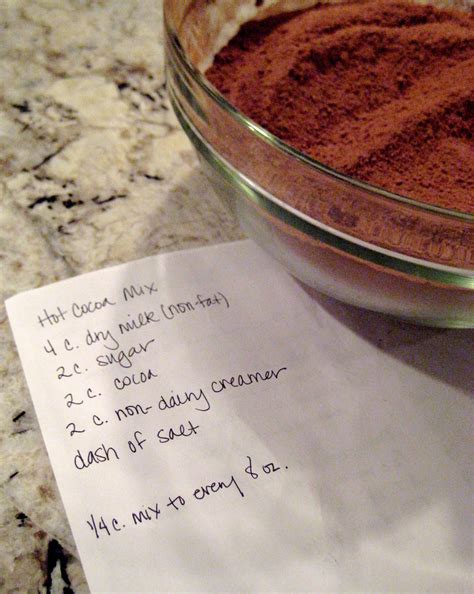 Hot Cocoa Mix
4 c. dry milk (non-fat)
2 c. sugar
2 c. cocoa
2 c. non-dairy creamer
dash of salt
1/4 c. mix to every 8 oz.